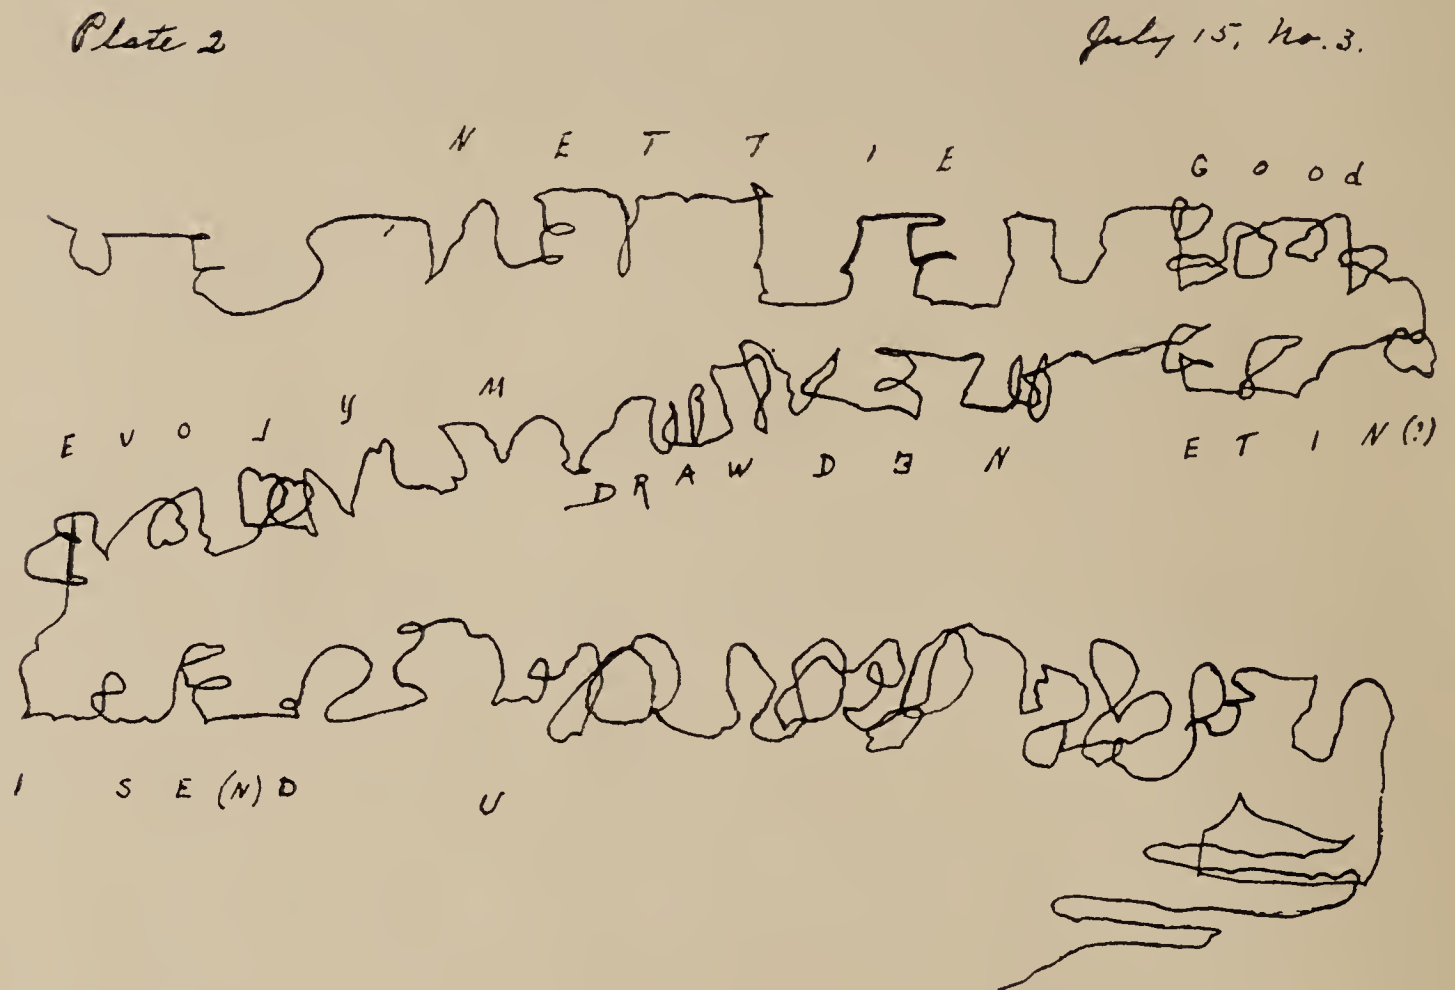 Plate 2 July 15, No. 3.
N E T T I E G O O d
E V O L Y M D R A W D E N E T I N (?)
I S E (N) D U